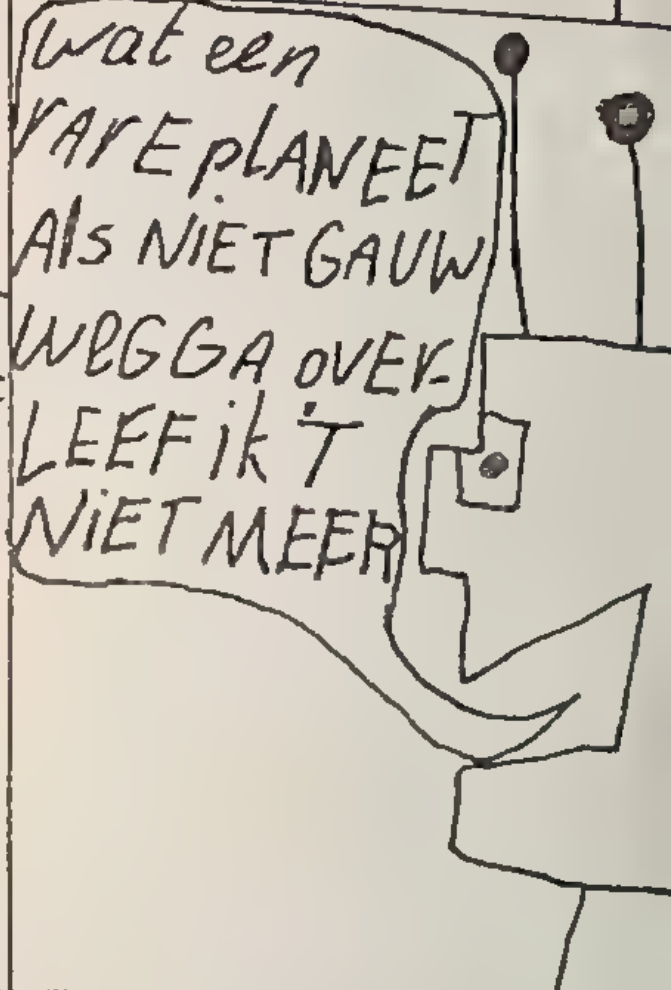 wat een
rArE plANEET
Als NiET GAUW
weGGA ovEr-
LEEF ik 'T
NiET MEER